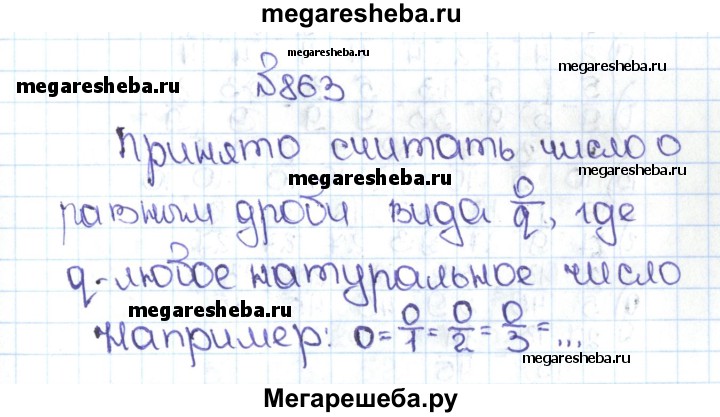 megaresheba.ru
megaresheba.ru
megaresheba.ru
megaresheba.ru
№863
Принято считать число 0
megaresheba.ru
равным дроби вида 0/q, где
q-любое натуральное число
megaresheba.ru
Например: 0=0/1=0/2=0/3=...
megaresheba.ru
Мегарешеба.ру